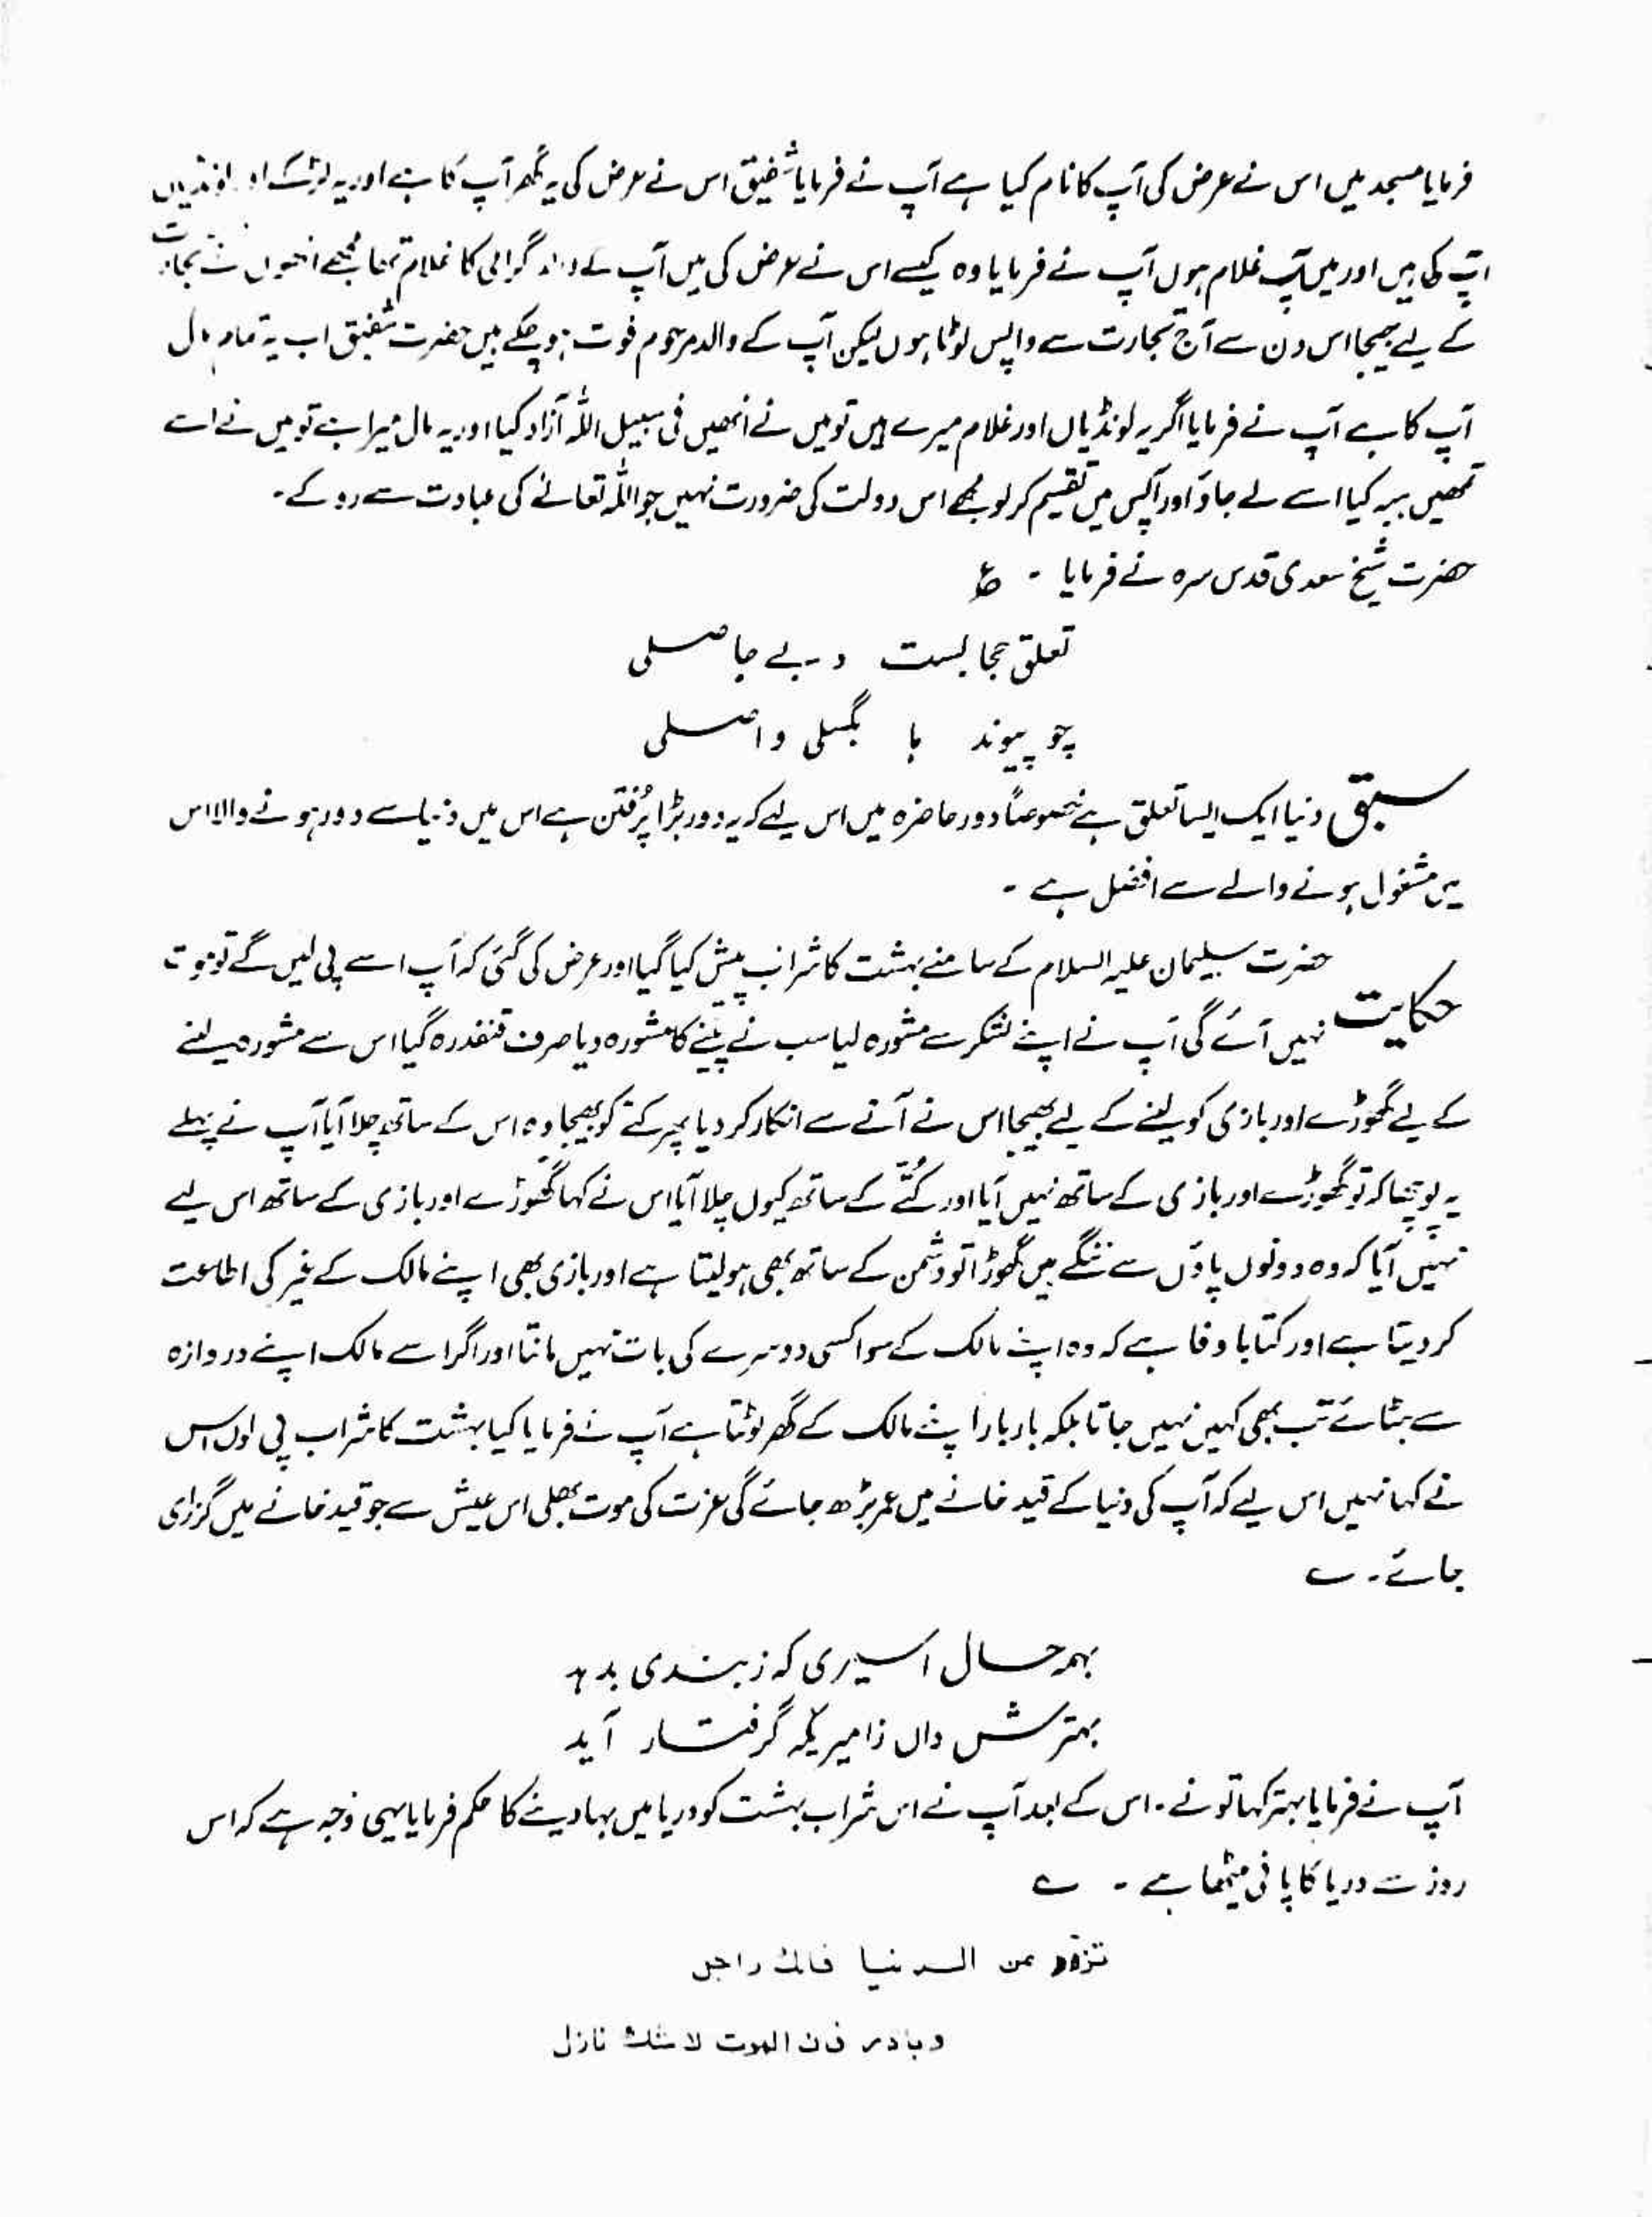 فرمایا مسجد میں اس نے عرض کی آپ کا نام کیا ہے آپ نے فرمایا شفیق اس نے عرض کی یہ گھر آپ کا ہے اور یہ لڑکے اور لونڈیاں
آپ کی ہیں اور میں آپ غلام ہوں آپ نے فرمایا وہ کیسے اس نے عرض کی میں آپ کے والد گرامی کا غلام تھا مجھے انھوں نے تجارت
کے لیے بھیجا اس دن سے آج تجارت سے واپس لوٹا ہوں لیکن آپ کے والد مرحوم فوت ہو چکے ہیں حضرت شفیق اب یہ تمام مال
آپ کا ہے آپ نے فرمایا اگر یہ لونڈیاں اور غلام میرے ہیں تو میں نے انھیں فی سبیل اللہ آزاد کیا اور یہ مال میرا ہے تو میں نے اسے
تمھیں ہبہ کیا اسے لے جاؤ اور آپس میں تقسیم کر لو مجھے اس دولت کی ضرورت نہیں جو اللہ تعالےٰ کی عبادت سے روکے۔
حضرت شیخ سعدی قدس سرہ نے فرمایا ۔ ؏
تعلق حجابست و بے حاصلی
چو پیوند ہا بگسلی واصلی
سبق دنیا ایک ایسا تعلق ہے خصوصاً دور حاضرہ میں اس لیے کہ یہ دور بڑا پُرفتن ہے اس میں دنیا سے دور ہونے والا اس
میں مشغول ہونے والے سے افضل ہے ۔
حکایت حضرت سلیمان علیہ السلام کے سامنے بہشت کا شراب پیش کیا گیا اور عرض کی گئی کہ آپ اسے پی لیں گے تو موت
نہیں آئے گی آپ نے اپنے لشکر سے مشورہ لیا سب نے پینے کا مشورہ دیا صرف قنفذ رہ گیا اس سے مشورہ لینے
کے لیے گھوڑے اور بازی کو لینے کے لیے بھیجا اس نے آنے سے انکار کر دیا پھر کتے کو بھیجا وہ اس کے ساتھ چلا آیا آپ نے پہلے
یہ پوچھا کہ تو گھوڑے اور بازی کے ساتھ نہیں آیا اور کُتّے کے ساتھ کیوں چلا آیا اس نے کہا گھوڑے اور بازی کے ساتھ اس لیے
نہیں آیا کہ وہ دونوں پاؤں سے ننگے ہیں گھوڑا تو دشمن کے ساتھ بھی ہو لیتا ہے اور بازی بھی اپنے مالک کے غیر کی اطاعت
کر دیتا ہے اور کتا با وفا ہے کہ وہ اپنے مالک کے سوا کسی دوسرے کی بات نہیں مانتا اور اگر اسے مالک اپنے دروازہ
سے ہٹائے تب بھی کہیں نہیں جاتا بلکہ بار بار اپنے مالک کے گھر لوٹتا ہے آپ نے فرمایا کیا بہشت کا شراب پی لوں اس
نے کہا نہیں اس لیے کہ آپ کی دنیا کے قید خانے میں عمر بڑھ جائے گی عزت کی موت بھلی اس عیش سے جو قید خانے میں گزاری
جائے۔ ے
بہمہ حال اسیری کہ ز بندی بدہد
بہترش داں ز امیریکہ گرفتار آید
آپ نے فرمایا بہتر کہا تو نے۔ اس کے بعد آپ نے اس شراب بہشت کو دریا میں بہا دینے کا حکم فرمایا یہی وجہ ہے کہ اس
روز سے دریا کا پانی میٹھا ہے ۔ ے
تزوّد من الدنیا فانك راحل
و بادر فان الموت لا شك نازل